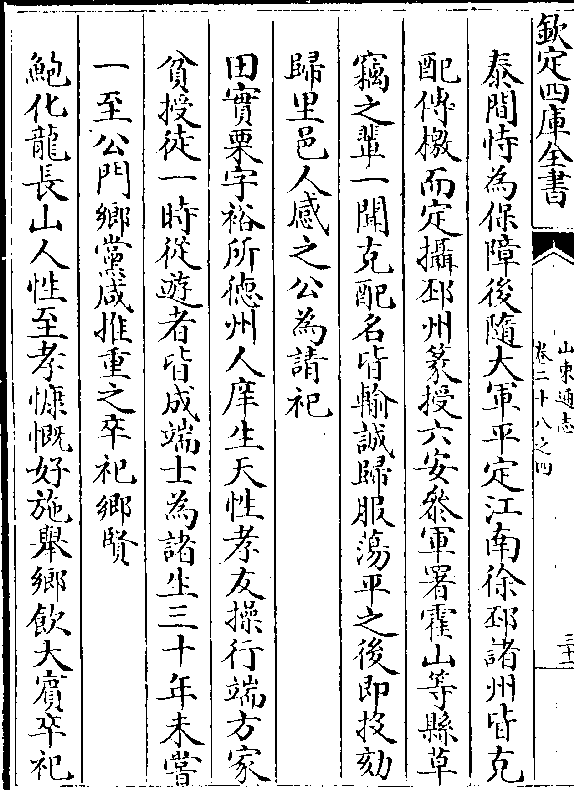 欽定四庫全書
山東通志
卷二十八之四
三十二
泰間恃為保障後隨大軍平定江南徐邳諸州皆克
配傳檄而定攝邳州篆授六安叅軍署霍山等縣草
竊之輩一聞克配名皆輸誠歸服蕩平之後即投劾
歸里邑人感之公為請祀
田實栗字裕所德州人庠生天性孝友操行端方家
貧授徒一時從遊者皆成端士為諸生三十年未嘗
一至公門鄉黨咸推重之卒祀鄉賢
鮑化龍長山人性至孝慷慨好施舉鄉飲大賓卒祀